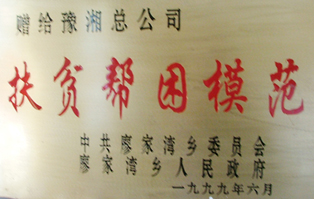 赠给豫湘总公司
扶贫帮困模范
中共廖家湾乡委员会
廖家湾乡人民政府
一九九九年六月